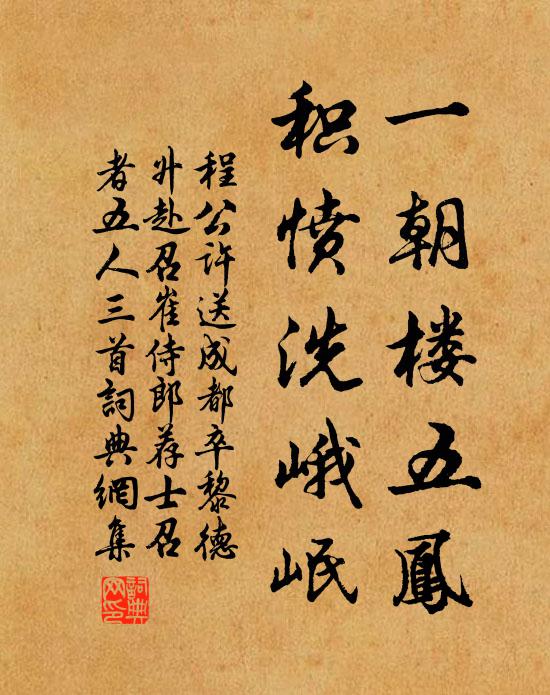 一朝楼五鳳
积愤洗峨岷
程公许送成都卒黎德
升赴召崔侍郎荐士召
者五人三首詞典網集
詞典
网印